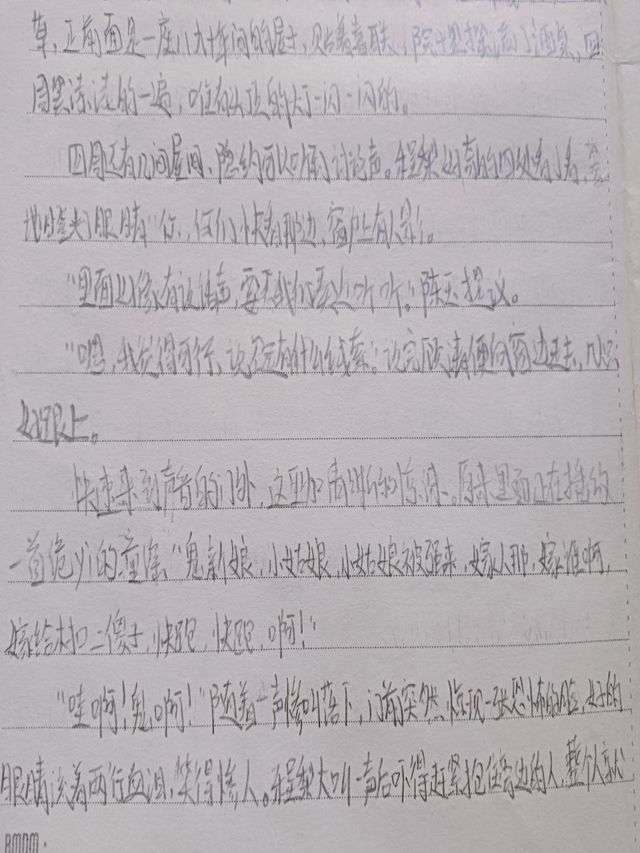 草,正前面是一座八九十年间的屋子,贴着喜联,院子里摆满了酒桌,四
周黑漆漆的一遍,唯有头顶的灯一闪一闪的。
四周还有几间屋间,隐约可以听到讨论声。程梨好奇的四处看了看,
地瞪大了眼睛"你,你们快看那边,窗户上有人影"。
"里面好像有说话声,要不我们靠近听听。"陈玉提议。
"嗯,我觉得可行,说不定有什么线索。"说完顾清便向窗边走去,几人只
好跟上。
快速来到声音的门外,这里的声音,原来里面正在播放
一首诡异的童谣"鬼新娘,小姑娘,小姑娘被强来,嫁人那,嫁谁啊,
嫁给村口二傻子,快跑,快跑,啊!"
"哇啊!鬼啊!"随着一声惨叫落下,门前突然惊现一张恐怖的脸,她的
眼睛流着两行血泪,笑得惨人。程梨大叫一声后吓得赶紧抱住旁边的人,整个人就